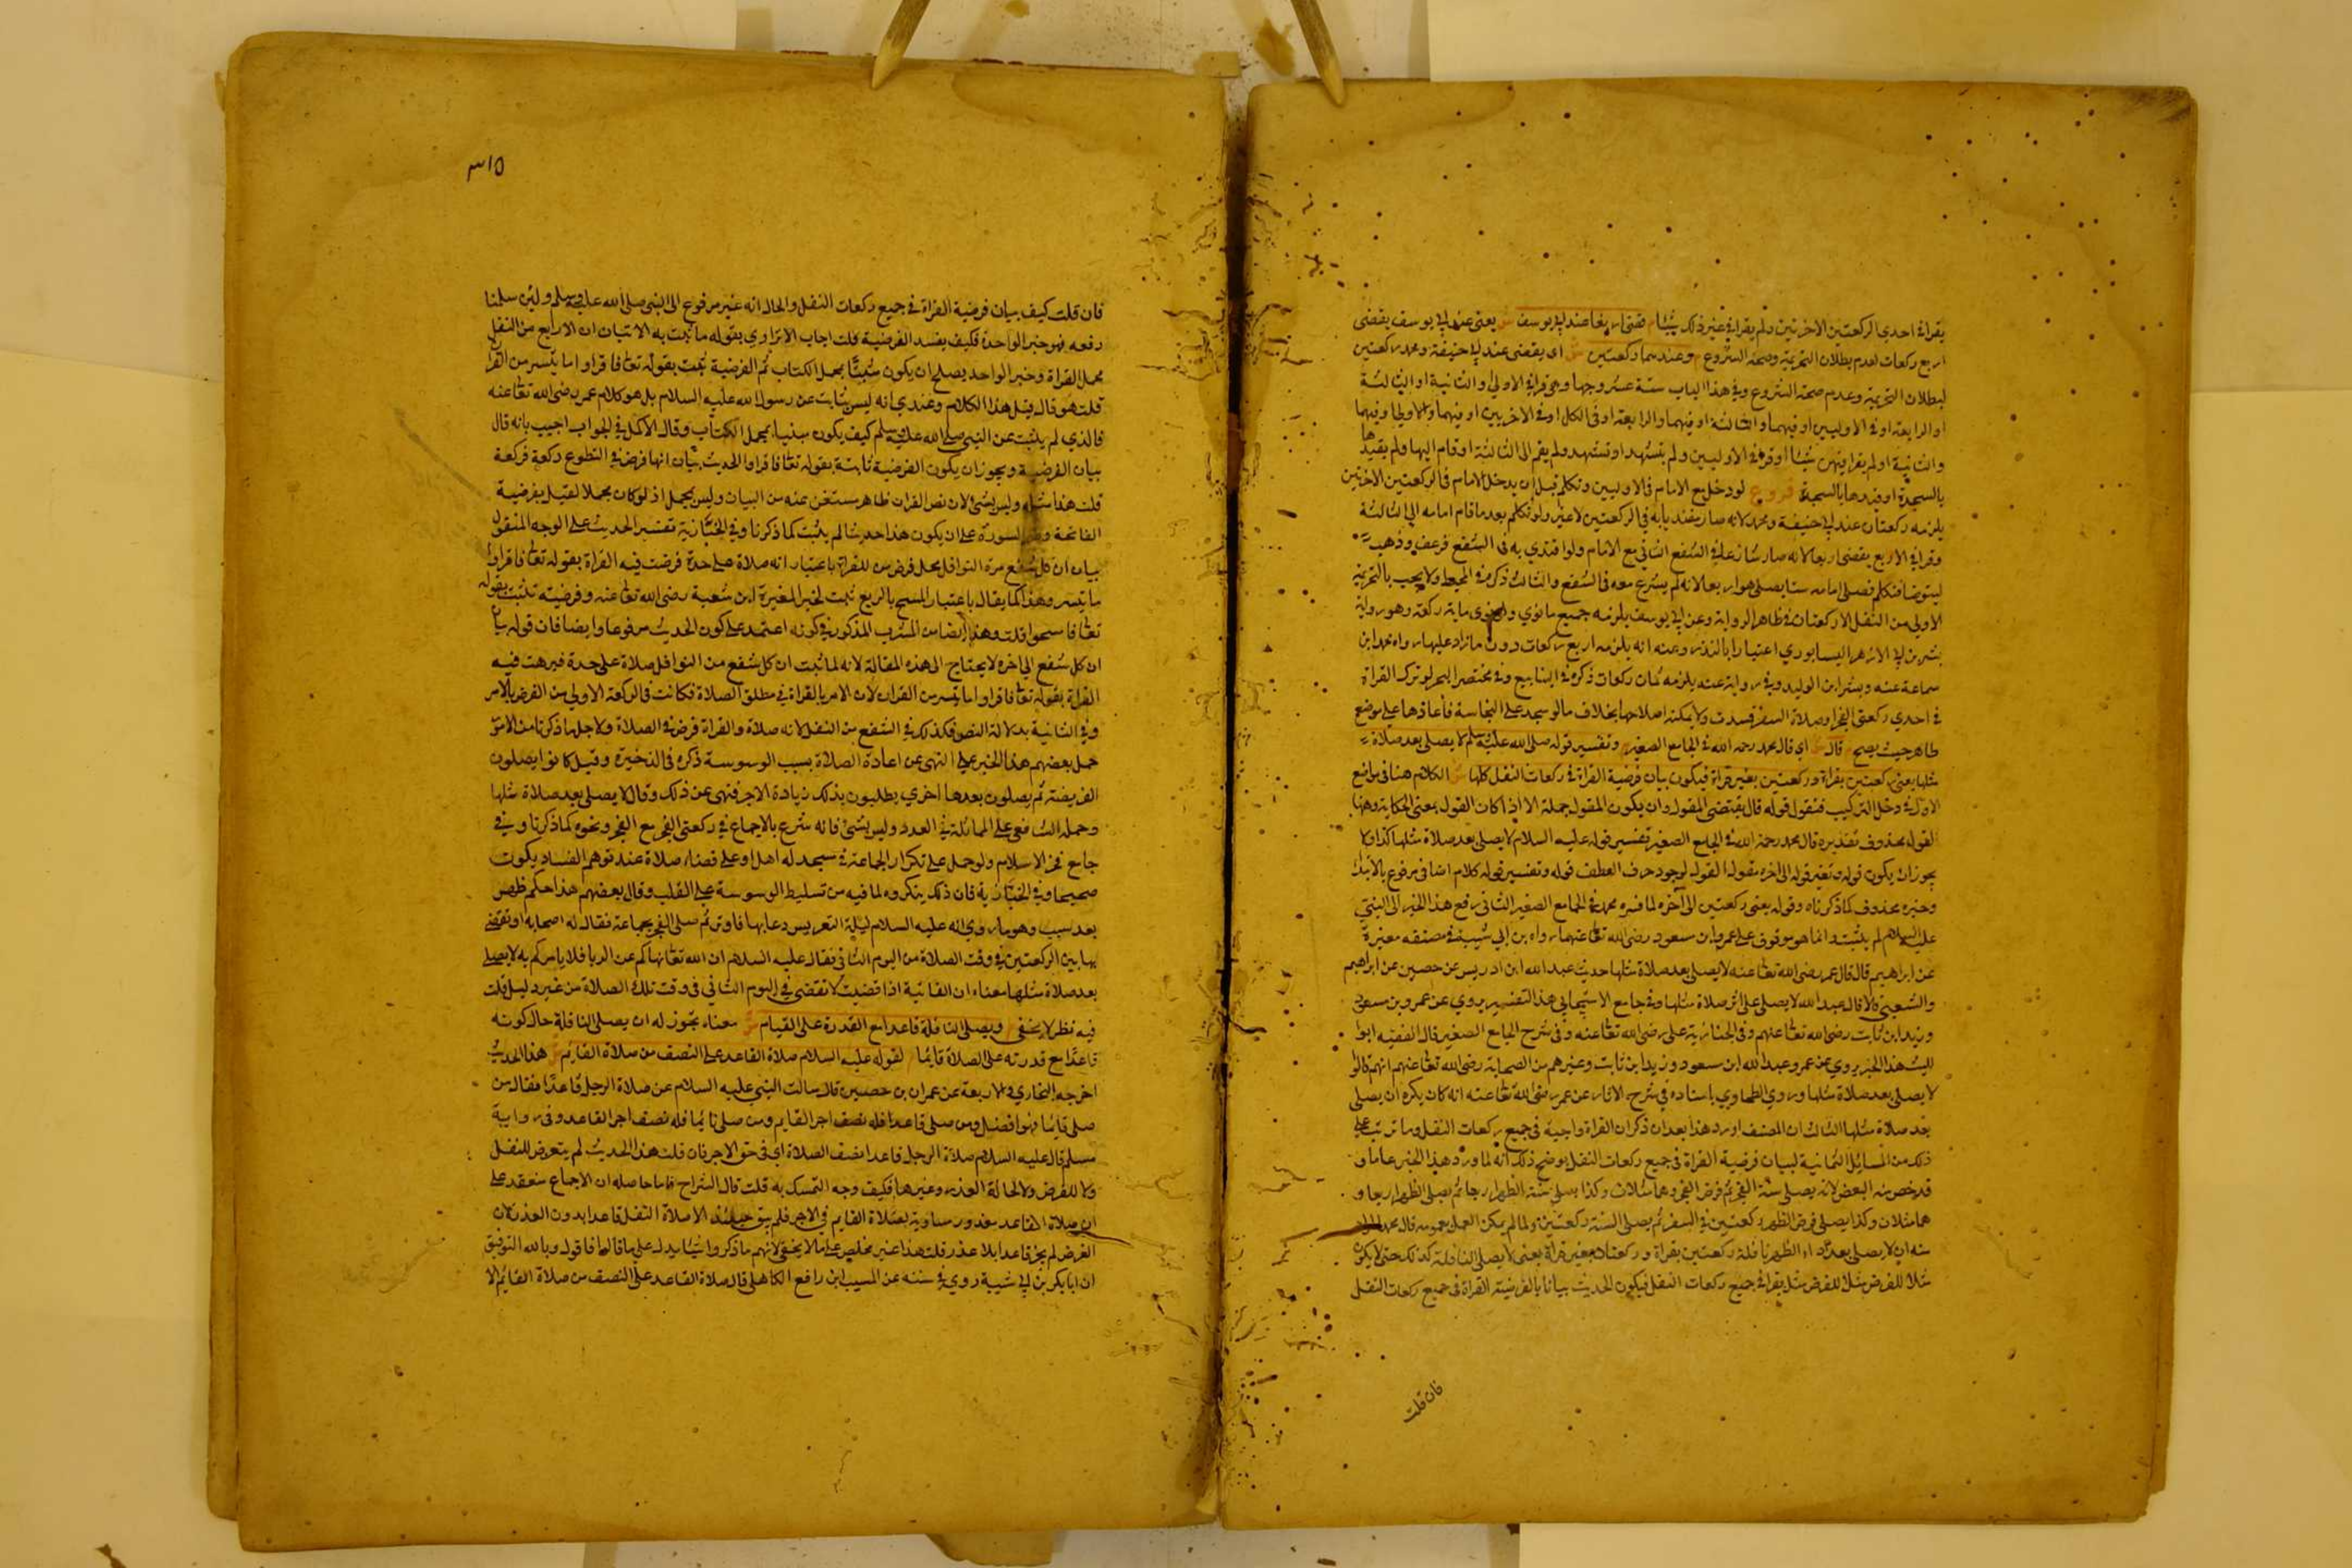 يقرا في احدي الركعتين الاخرتين ولم يقرا في غير ذلك شيئا م قضي اربعا عند ابي يوسف ش يعني عند ابي يوسف يقضي
اربع ركعات لعدم بطلان التحريمة وصحة الشروع م وعندهما ركعتين ش اي يقضي عند ابي حنيفة ومحمد ركعتين
لبطلان التحريمة وعدم صحة الشروع وفي هذا الباب ستة عشر وجها وهي قرا في الاولي والثانية او الثالثة
او الرابعة او في الاوليين او فيهما والثالثة او فيهما والرابعة او في الكل او في الاخريين او فيهما والاولي او فيهما
والثانية او لم يقرا فيهن شيئا او قرا في الاوليين ولم يتشهد او تشهد ولم يقم الي الثالثة او قام اليها ولم يقيدها
بالسجدة او قيدها بالسجدة فروع لو دخل مع الامام في الاوليين وتكلم قبل ان يدخل الامام في الركعتين الاخرتين
يلزمه ركعتان عند ابي حنيفة ومحمد لانه صار مقتديا به في الركعتين لا غير ولو تكلم بعد ما قام امامه الي الثالثة
وقرا في الاربع يقضي اربعا لانه صار شارعا في الشفع الثاني مع الامام ولو اقتدي به في الشفع فرعف وذهب
ليتوضا فتكلم فصلي امامه ستا يصلي هو اربعا لانه لم يشرع معه في الشفع والثالث ذكره في المحيط ولا يجب بالتحريمة
الاولي من النفل الا ركعتان في ظاهر الرواية وعن ابي يوسف يلزمه جميع ما نوي ولو نوي ماية ركعة وهو رواية
بشر بن ابي الازهر النيسابوري اعتبارا بالنذر وعنه انه يلزمه اربع ركعات دون ما زاد عليها رواه محمد ابن
سماعة عنه وبشر ابن الوليد وفي رواية عنه يلزمه ثمان ركعات ذكره في الينابيع وفي مختصر البحر لو ترك القراة
في احدي ركعتي الفجر او صلاة السفر فسدت ولا يمكنه اصلاحها بخلاف ما لو سجد علي النجاسة فاعادها علي موضع
طاهر حيث يصح م قال ش اي قال محمد رحمه الله في الجامع الصغير م وتفسير قوله صلي الله عليه وسلم لا يصلي بعد صلاة
مثلها يعني ركعتين بقراة وركعتين بغير قراة فيكون بيان فرضية القراة في ركعات النفل كلها ش الكلام هنا في مواضع
الاول في دخل التركيب فنقول قوله قال يقتضي المقول وان يكون المقول جملة الا اذا كان القول بمعني الحكاية وهنا
القول محذوف تقديره قال محمد رحمة الله في الجامع الصغير تفسير قوله عليه السلام لا يصلي بعد صلاة مثلها كذا ولا
يجوز ان يكون قوله وتفسير قوله الي اخره مقول القول لوجود حرف العطف قوله وتفسير قوله كلام اضافي مرفوع بالابتدا
وخبره محذوف كما ذكرناه وقوله يعني ركعتين الي آخره لما فسره محمد في الجامع الصغير الثاني رفع هذا الخبر الي النبي
عليه السلام لم يثبت وانما هو موقوف علي عمر وابن مسعود رضي الله تعالي عنهما رواه بن ابي شيبة في مصنفه مغيرة
عن ابراهيم قال قال عمر رضي الله تعالي عنه لا يصلي بعد صلاة مثلها حديث عبد الله ابن ادريس عن حصين عن ابراهيم
والشعبي قالا قال عبد الله لا يصلي علي اثر صلاة مثلها وفي جامع الاسبيجابي هذا التفسير يروي عن عمر وبن مسعود
وزيد ابن ثابت رضي الله تعالي عنهم وفي الجنازية علي رضي الله تعالي عنه وفي شرح الجامع الصغير قال الفقيه ابوا
الليث هذا الخبر يروي عن عمر وعبد الله ابن مسعود وزيد ابن ثابت وغيرهم من الصحابة رضي الله تعالي عنهم انهم قالوا
لا يصلي بعد صلاة مثلها وروي الطحاوي باسناده في شرح الاثار عن عمر رضي الله تعالي عنه انه كان يكره ان يصلي
بعد صلاة مثلها الثالث ان المصنف اورد هذا بعد ان ذكر ان القراة واجبة في جميع ركعات النفل وما ترتب علي
ذلك من المسائل الثمانية لبيان فرضية القراة في جميع ركعات النفل يوضح ذلك انه لما ورد هذا الخبر عاما و
قد خص منه البعض لانه يصلي سنة الفجر ثم فرض الفجر وهما مثلان وكذا يصلي سنة الظهر اربعا ثم يصلي الظهر اربعا و
هما مثلان وكذا يصلي فرض الظهر ركعتين في السفر ثم يصلي السنة ركعتين ولما لم يمكن العمل بعمومه قال محمد المراد
منه ان لا يصلي بعد اداء الظهر نافلة ركعتين بقراة وركعتان بغير قراة يعني لا يصلي النافلة كذلك حتي لا يكون
مثلا للفرض مثلا للفرض مثل يقرا في جميع ركعات النفل فيكون الحديث بيانا بالفرضية القراة في جميع ركعات النفل
فان قلت
٣١٥
فان قلت كيف بيان فرضية القراة في جميع ركعات النفل والحال انه غير مرفوع الي النبي صلي الله عليه وسلم ولئن سلمنا
رفعه فهو خبر الواحد فكيف يفسد الفرضية قلت اجاب الاترازي بقوله ما ثبت به الاتيان ان الاربع من النفل
محل القراة وخبر الواحد يصلح ان يكون مثبتا بمجمل الكتاب ثم الفرضية ثبت بقوله تعالي فاقراوا ما يتسر من القران
قلت هو قال قبل هذا الكلام وعندي انه ليس بثابت عن رسول الله عليه السلام بل هو كلام عمر رضي الله تعالي عنه
فالذي لم يثبت عن النبي صلي الله عليه وسلم كيف يكون مبنيا بمجمل الكتاب وقال الاكمل في الجواب اجيب بانه قال
بيان الفرضية ويجوز ان يكون الفرضية ثابتة بقوله تعالي فاقراوا الحديث بيان انها فرض في التطوع ركعة فركعة
قلت هذا مثله وليس بشئ لان نص القران ظاهر مستغن عنه من البيان وليس بمجمل اذ لو كان مجملا لقيل بفرضية
الفاتحة وضم السورة علي ان يكون هذا حديثا لم يثبت كما ذكرنا وفي الخبازية تفسير الحديث علي الوجه المنقول
بيان ان كل شفع من النوافل محل فرض من للقراة باعتبار انه صلاة علي حدة فرضت فيه القراة بقوله تعالي فاقراوا
ما يتسر وهذا كما يقال باعتبار المسح بالربع ثبت لخبر المغيرة ابن شعبة رضي الله تعالي عنه وفرضيته تثبت بقوله
تعالي فامسحوا قلت وهذا ايضا من المشرب المذكور في كونه اعتمد علي كون الحديث مرفوعا وايضا فان قوله بيان
ان كل شفع الي اخره لا يحتاج الي هذه المقالة لانه لما ثبت ان كل شفع من النوافل صلاة علي حدة فرضت فيه
القراة بقوله تعالي فاقراوا ما يتسر من القران لان الامر بالقراة في مطلق الصلاة فكانت في الركعة الاولي من الفرض بالامر
وفي الثانية بدلالة النص فكذلك في الشفع من النفل لانه صلاة والقراة فرض في الصلاة ولاجل ما ذكرنا من الامور
حمل بعضهم هذا الخبر علي النهي عن اعادة الصلاة بسبب الوسوسة ذكره في الذخيرة وقيل كانوا يصلون
الفريضة ثم يصلون بعدها اخري يطلبون بذلك زيادة الاجر فنهي عن ذلك وقال لا يصلي بعد صلاة مثلها
وحمله الشافعي علي المماثلة في العدد وليس بشئ فانه شرع بالاجماع في ركعتي الفجر مع الفجر ونحوه كما ذكرنا وفي
جامع فخر الاسلام ولو حمل علي تكرار الجماعة في مسجد له اهل او علي قضاء صلاة عند توهم الفساد يكون
صحيحا وفي الخبازية فان ذلك يتكره لما فيه من تسليط الوسوسة علي القلب وقال بعضهم هذا حكم ظهر
بعد سبب وهو ما روي انه عليه السلام ليلة التعريس دعا بها فاوتر ثم صلي الفجر بجماعة فقال له اصحابه او نقضي
بها بين الركعتين في وقت الصلاة من اليوم الثاني فقال عليه السلام ان الله تعالي نهاكم عن الربا فلا يامركم به لا يصلي
بعد صلاة مثلها معناه ان الفائتة اذا قضيت لا تقضي في اليوم الثاني في وقت تلك الصلاة من غير دليل قلت
فيه نظر لا يخفي م ويصلي النافلة قاعدا مع القدرة علي القيام ش معناه يجوز له ان يصلي النافلة حال كونه
قاعدا مع قدرته علي الصلاة قايما م لقوله عليه السلام صلاة القاعد علي النصف من صلاة القايم ش هذا الحديث
اخرجه البخاري والاربعة عن عمران بن حصين قال سالت النبي عليه السلام عن صلاة الرجل قاعدا فقال من
صلي قايما فهو افضل ومن صلي قاعدا فله نصف اجر القايم ومن صلي نايما فله نصف اجر القاعد وفي رواية
مسلم قال عليه السلام صلاة الرجل قاعدا نصف الصلاة اي في حق الاجر فان قلت هذا الحديث لم يتعرض للنفل
ولا للفرض ولا لحالة العذر وغيرها فكيف وجه التمسك به قلت قال الشراح فاما حاصله ان الاجماع منعقد علي
ان صلاة القاعد بعذر مساوية لصلاة القايم في الاجر فلم يبق حينئذ الا صلاة النفل قاعدا بدون العذر لان
الفرض لم يجز قاعدا بلا عذر قلت هذا غير مخلص علي ما لا يخفي لانهم ما ذكروا شيئا يدل علي ما قالوا فاقول وبالله التوفيق
ان ابا بكر بن ابي شيبة روي في سننه عن المسيب ابن رافع الكاهلي قال صلاة القاعد علي النصف من صلاة القايم الا